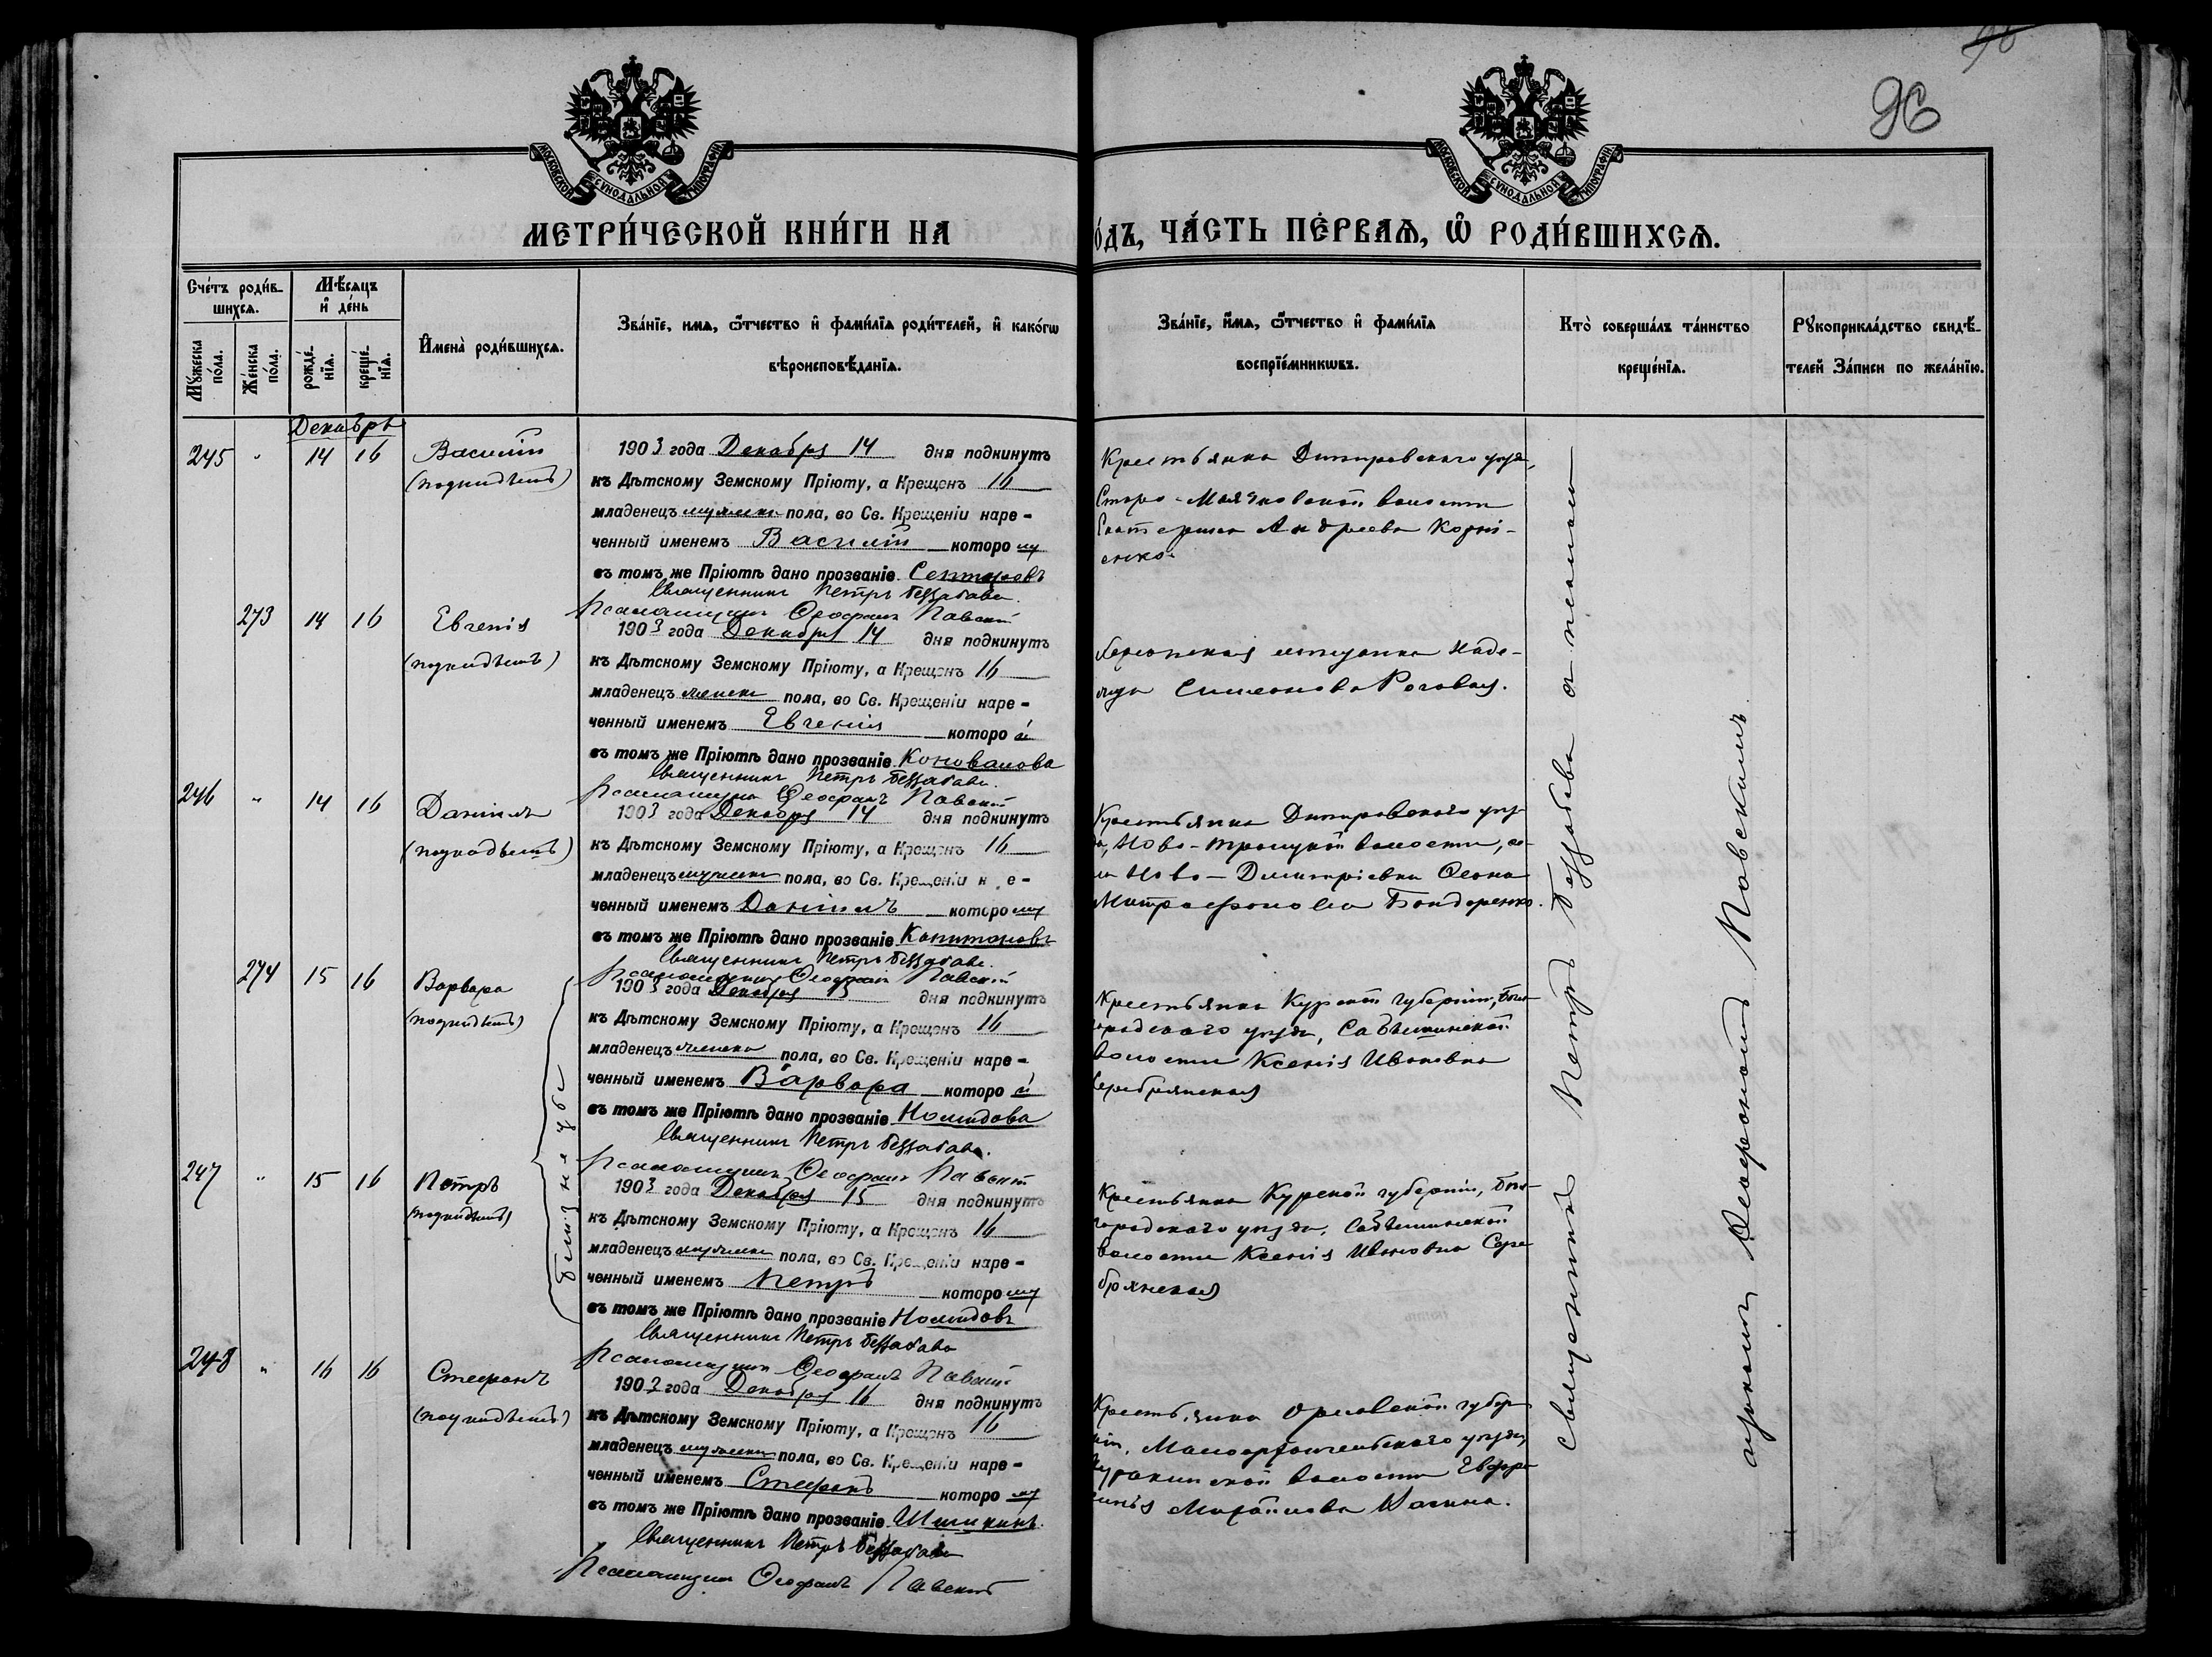 96
96
МОСКОВСКОЙ СѴНОДАЛЬНОЙ ТИПОГРАФІИ
МОСКОВСКОЙ СѴНОДАЛЬНОЙ ТИПОГРАФІИ
МЕТРИ́ЧЕСКОЙ КНИ́ГИ НА
о́дъ, ЧА́СТЬ ПЕ́РВАѦ, Ѡ҆ РОДИ́ВШИХСѦ.
Сче́тъ роди́в-
шихсѧ.
Мѣ́сяцъ
и҆ де́нь
Мꙋжеска
по́ла.
Же́нска
по́ла.
рожде́-
нїѧ.
креще́-
нїѧ.
И҆мена̀ роди́вшихсѧ.
Зва́нїе, имѧ, ѻ҆́тчество и҆ фами́лїѧ роди́телей, и҆ како́гѡ
вѣроисповѣ́данїѧ.
Зва́нїе, и҆́мѧ, ѻ҆́тчество и҆ фами́лїѧ
воспрїе́мникѡвъ.
Кто̀ соверша́лъ та́инство
креще́нїѧ.
Рꙋкоприкла́дство свидѣ́-
телей За́писи по жела́нїю.
Декабрь
245 " 14 16 Василій
(подкидышъ)
1903 года Декабря 14 дня подкинутъ
къ Дѣтскому Земскому Пріюту, а Крещенъ 16
младенецъ мужеска пола, во Св. Крещеніи наре-
ченный именемъ Василій которому
въ томъ же Пріютѣ дано прозваніе
Священникъ Петръ Беззабава
Псаломщикъ Ѳеофанъ Павскій
Крестьянка Днѣпровскаго уѣзда,
Старо-Маячковской волости
Екатерина Андреева Корні-
енко.
273 14 16 Евгенія
(подкидышъ)
1903 года Декабря 14 дня подкинутъ
къ Дѣтскому Земскому Пріюту, а Крещенъ 16
младенецъ женска пола, во Св. Крещеніи наре-
ченный именемъ Евгенія которой
въ томъ же Пріютѣ дано прозваніе Коновалова
Священникъ Петръ Беззабава
Псаломщикъ Ѳеофанъ Павскій
Херсонская мѣщанка Наде-
жда Симеонова Роговая.
246 " 14 16 Даніилъ
(подкидышъ)
1903 года Декабря 14 дня подкинутъ
къ Дѣтскому Земскому Пріюту, а Крещенъ 16
младенецъ мужеска пола, во Св. Крещеніи н е-
ченный именемъ Даніилъ которому
въ томъ же Пріютѣ дано прозваніе Капитановъ
Священникъ Петръ Беззабава.
Псаломщикъ Ѳеофанъ Павскій
Крестьянка Днѣпровскаго уѣз-
да, Ново-Троицкой волости, се-
ла Ново-Димитріевки
Митрофанова Бондаренко.
274 15 16 Варвара
(подкидышъ)
1903 года Декабря 15 дня подкинутъ
къ Дѣтскому Земскому Пріюту, а Крещенъ 16
младенецъ женска пола, во Св. Крещеніи наре-
ченный именемъ Варвара которой
въ томъ же Пріютѣ дано прозваніе
Священникъ Петръ Беззабава.
Псаломщикъ Ѳеофанъ Павскій
Крестьянка Курской губерніи, Бѣл-
городскаго уѣзда,
волости Ксенія Ивановна
Серебрянская
близнецы
247 " 15 16 Петръ
(подкидышъ)
1903 года Декабря 15 дня подкинутъ
къ Дѣтскому Земскому Пріюту, а Крещенъ 16
младенецъ мужеска пола, во Св. Крещеніи наре-
ченный именемъ Петръ которому
въ томъ же Пріютѣ дано прозваніе
Священникъ Петръ Беззабава
Псаломщикъ Ѳеофанъ Павскій
Крестьянка Курской губерніи, Бѣл-
городскаго уѣзда,
волости Ксенія Ивановна Сере-
брянская
248 " 16 16 Стефанъ
(подкидышъ)
1903 года Декабря 16 дня подкинутъ
къ Дѣтскому Земскому Пріюту, а Крещенъ 16
младенецъ мужеска пола, во Св. Крещеніи наре-
ченный именемъ Стефанъ которому
въ томъ же Пріютѣ дано прозваніе Шишкинъ
Священникъ Петръ Беззабава
Псаломщикъ Ѳеофанъ Павскій
Крестьянка Орловской губер-
ніи, Малоархангельскаго уѣзда,
Куракинской волости Евфро-
синья Михайлова
Священникъ Петръ Беззабава и псалом-
щикомъ Ѳеофаномъ Павскимъ